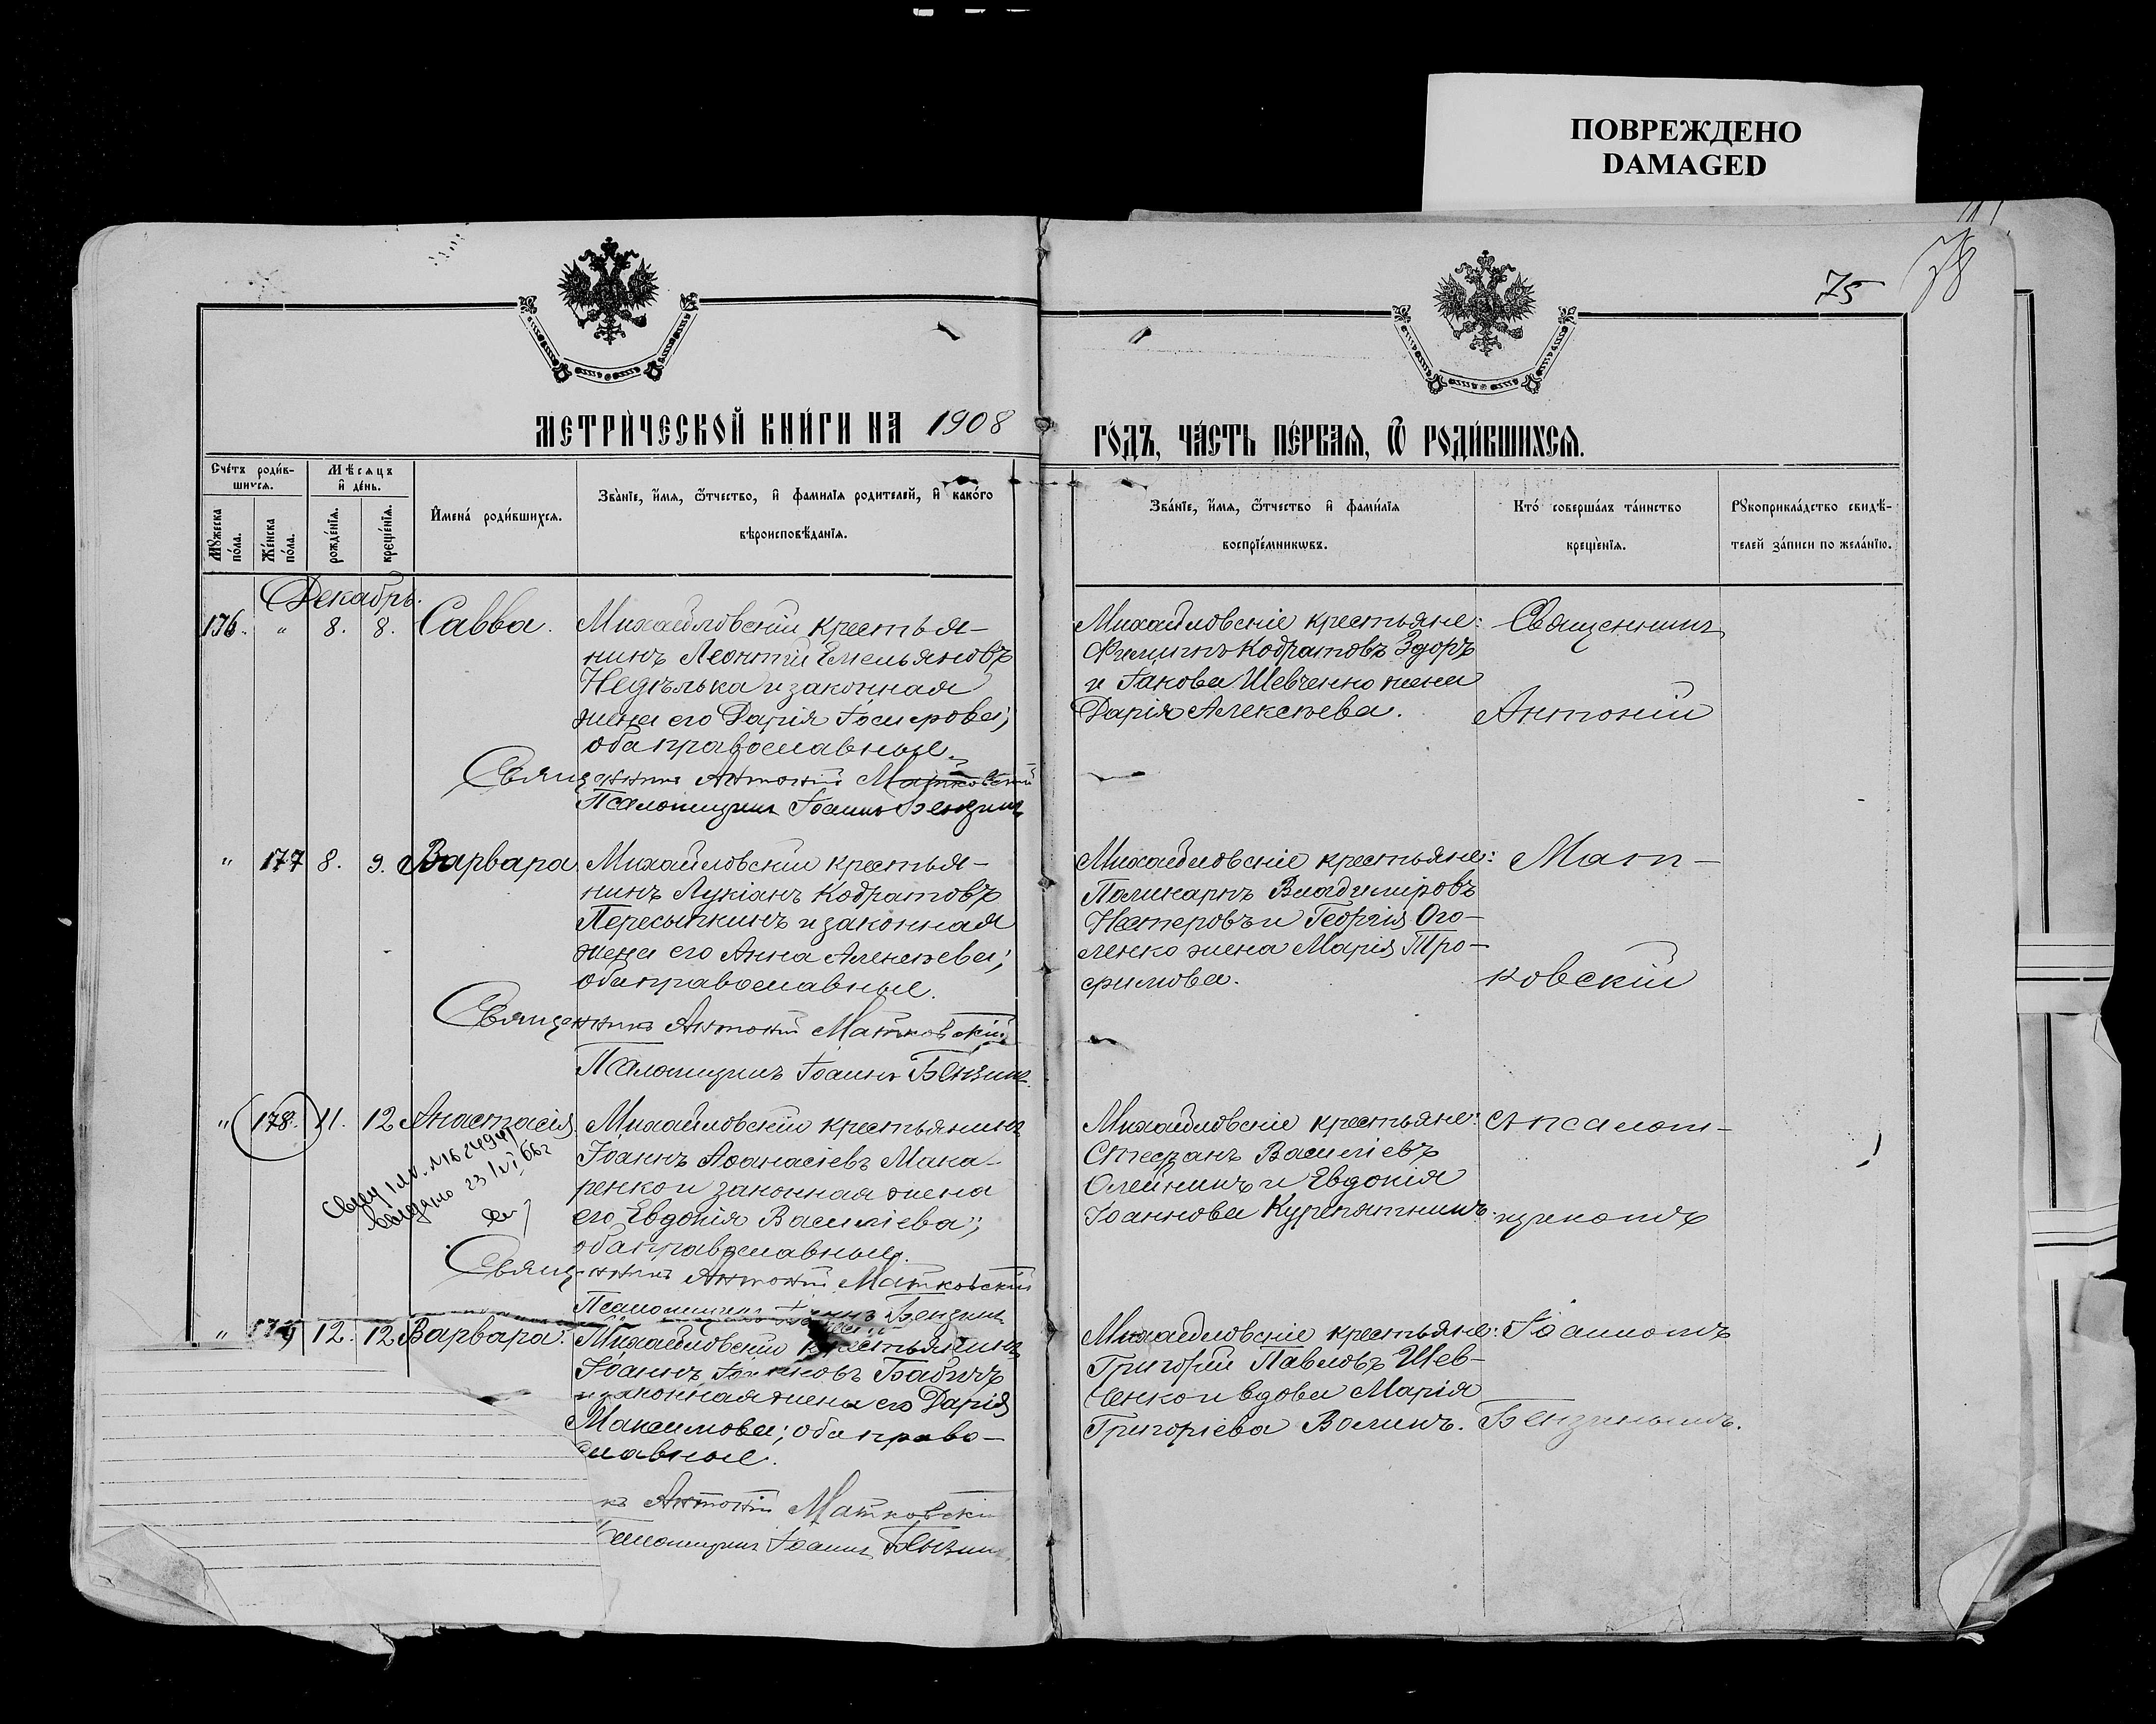 ПОВРЕЖДЕНО
DAMAGED
75
78
МЕТРИ́ЧЕСКОЙ КНИ́ГИ НА 1908
ГО́ДЪ, ЧА́СТЬ ПЕ́РВАѦ, Ѿ РОДИ́ВШИХСѦ.
Сче́тъ роди́в-
шихсѧ.
Мѣсѧцъ
и де́нь.
Мꙋжеска по́ла.
Же́нска по́ла.
рожде́нїѧ.
креще́нїѧ.
Имена́ роди́вшихсѧ.
Зва́нїе, и́мѧ, ѻ́тчество, и фами́лїѧ родителей, и како́го
вѣроисповѣ́данїѧ.
Зва́нїе, и́мѧ, ѻ́тчество и фами́лїѧ
воспрїе́мникѡвъ.
Кто́ соверша́лъ та́инство
креще́нїѧ.
Рꙋкоприкла́дство свидѣ́-
телей за́писи по жела́нїю.
Декабрь.
176. " 8. 8. Савва.
Михайловскій крестья-
нинъ Леонтій Емельяновъ
Недѣлька и законная
жена его Дарія Іосифова;
оба православные.
Священникъ Антоній Матковскій
Псаломщикъ Іоаннъ Бензинъ
Михайловскіе крестьяне:
Филиппъ Кодратовъ Здоръ
и Іакова Шевченко жена
Дарія Алексѣева.
Священникъ
Антоній
" 177 8. 9. Варвара.
Михайловскій крестья-
нинъ Лукіанъ Кодратовъ
Пересыпкинъ и законная
жена его Анна Алексѣева;
оба православные.
Священникъ Антоній Матковскій
Псаломщикъ Іоаннъ Бензинъ.
Михайловскіе крестьяне:
Поликарпъ Владиміровъ
Нестеровъ и Георгія Ого-
ленко жена Марія Тро-
фимова.
Мат-
ковскій
" 178. 11. 12 Анастасія.
выдано 23/VI 66г
Михайловскій крестьянинъ
Іоаннъ Аѳанасіевъ Мака-
ренко и законная жена
его Евдокія Василіева;
оба православные.
Священникъ Антоній Матковскій
Псаломщикъ Бензинъ
Михайловскіе крестьяне:
Стефанъ Василіевъ
Олейникъ и Евдокія
Іоаннова Курепятникъ.
с псалом-
щикомъ
" 179 12. 12 Варвара.
Михайловскій крестьянинъ
Іоаннъ Іоанновъ Бабичъ
и законная жена его Дарія
Максимова; оба право-
славные.
къ Антоній Матковскій
Псаломщикъ Іоаннъ Бензинъ.
Михайловскіе крестьяне:
Григорій Павловъ Шев-
ченко и вдова Марія
Григоріева Воликъ.
Іоанномъ
Бензинымъ.